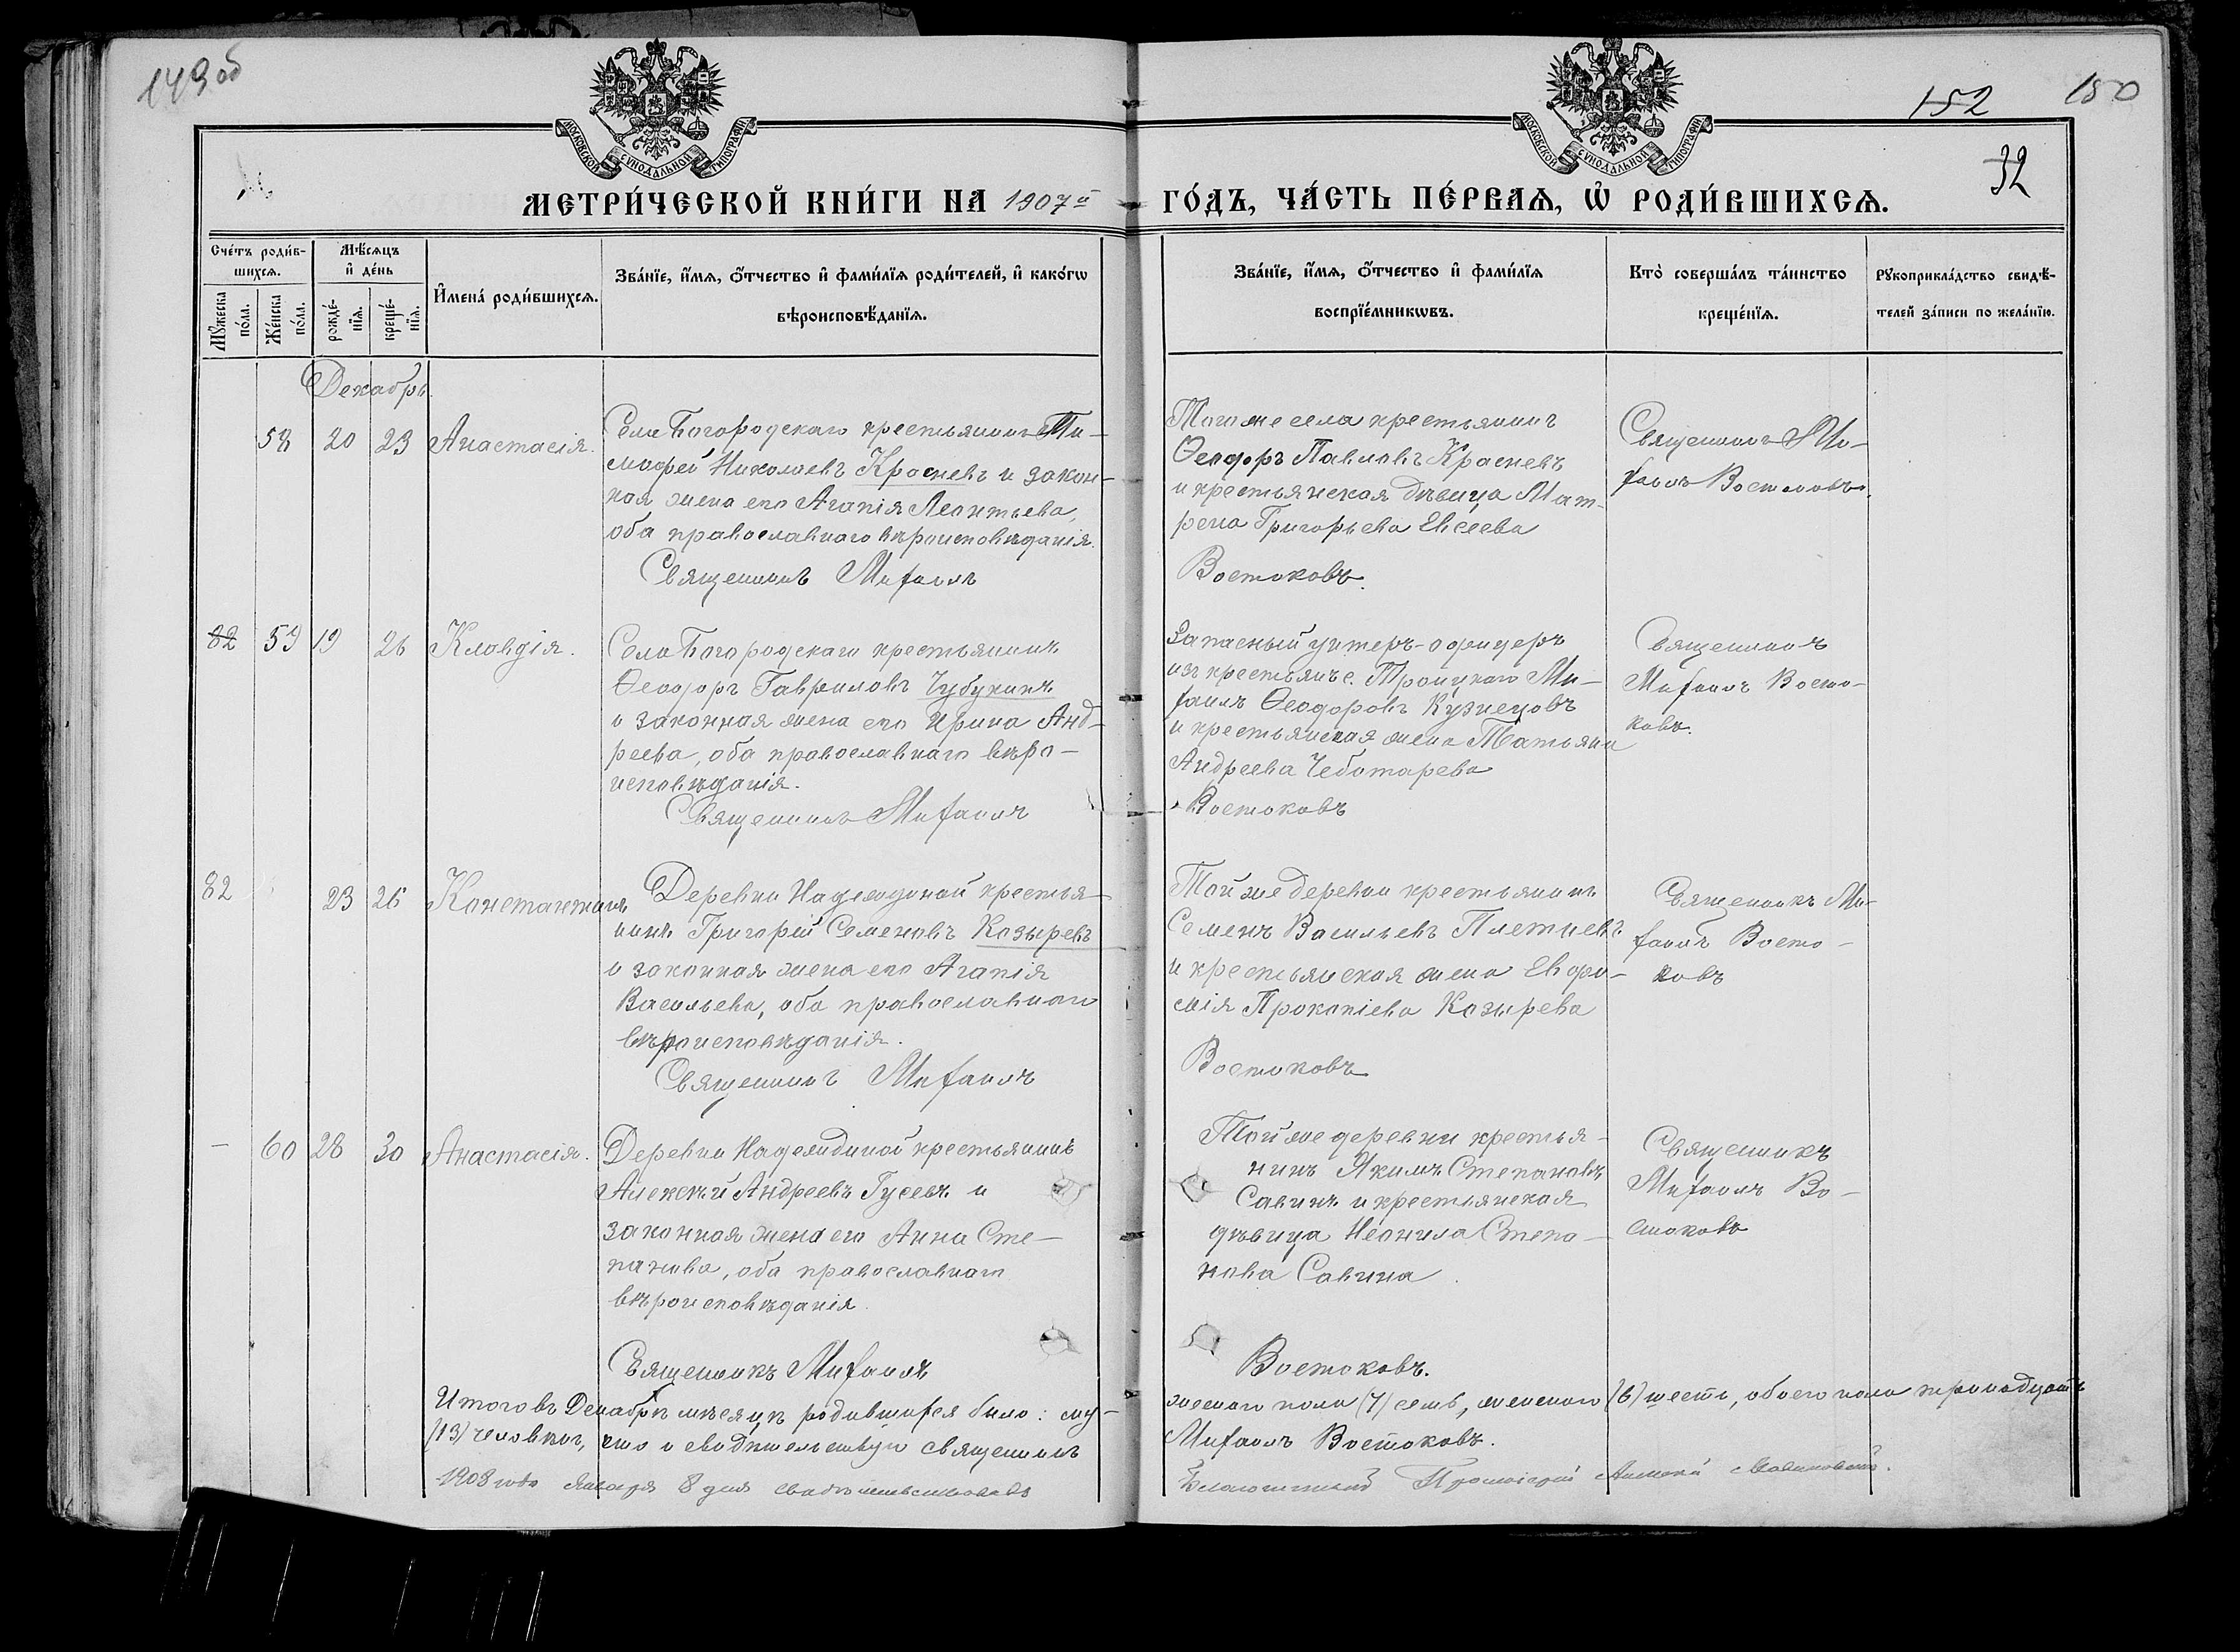 149 об
152
150
32
МОСКОВСКОЙ СѴНОДАЛЬНОЙ ТИПОГРАФІИ
МОСКОВСКОЙ СѴНОДАЛЬНОЙ ТИПОГРАФІИ
МЕТРИ́ЧЕСКОЙ КНИ́ГИ НА 1907й ГО́ДЪ, ЧА́СТЬ ПЕ́РВАѦ, Ѡ҆ РОДИ́ВШИХСѦ.
Сче́тъ роди́в-
шихсѧ.
Мꙋ́жеска по́ла.
Же́нска по́ла.
Мѣ́сѧцъ
и҆ де́нь
рожде́-
нїѧ.
креще́-
нїѧ.
И҆мена̀ роди́вшихсѧ.
Зва́нїе, и҆́мѧ, ѻ҆́тчество и҆ фами́лїѧ роди́телей, и҆ како́гѡ
вѣроисповѣ́данїѧ.
Зва́нїе, и҆́мѧ, ѻ҆́тчество и҆ фами́лїѧ
воспрїе́мникѡвъ.
Кто̀ соверша́лъ та́инство
креще́нїѧ.
Рꙋкоприкла́дство свидѣ́-
телей за́писи по жела́нїю.
Декабрь.
58 20 23 Анастасія.
Села Богородскаго крестьянинъ Ти-
мофей Николаевъ Красневъ и закон-
ная жена его Агапія Леонтьева,
оба православнаго вѣроисповѣданія.
Священникъ Михаилъ
Того же села крестьянинъ
Ѳеодоръ Павловъ Красневъ
и крестьянская дѣвица Мат-
рена Григорьева Евсеева
Востоковъ.
Священникъ Ми-
хаилъ Востоковъ.
82 59 19 26 Клавдія.
Села Богородскаго крестьянинъ
Ѳеодоръ Гавриловъ Чубукинъ
и законная жена его Ирина Анд-
реева, оба православнаго вѣро-
исповѣданія.
Священникъ Михаилъ
Запасный унтеръ-офицеръ
изъ крестьянъ с. Троицкаго Ми-
хаилъ Ѳеодоровъ Кузнецовъ
и крестьянская жена Татьяна
Андреева Чеботарева
Востоковъ
Священникъ
Михаилъ Восто-
ковъ.
82 23 26 Константинъ
Деревни Надеждиной крестья-
нинъ Григорій Семеновъ Козыревъ
и законная жена его Агапія
Васильева, оба православнаго
вѣроисповѣданія.
Священникъ Михаилъ
Той же деревни крестьянинъ
Семенъ Васильевъ Плетневъ
и крестьянская жена Евфи-
мія Прокопіева Козырева
Востоковъ
Священникъ Ми-
хаилъ Восто-
ковъ
- 60 28 30 Анастасія.
Деревни Надеждиной крестьянинъ
Алексѣй Андреевъ Гусевъ и
законная жена его Анна Сте-
панова, оба православнаго
вѣроисповѣданія.
Священникъ Михаилъ
Той же деревни крестья-
нинъ Якимъ Степановъ
Савинъ и крестьянская
дѣвица Неонила Степа-
нова Савина
Востоковъ.
Священникъ
Михаилъ Во-
стоковъ
Итого въ Декабрѣ мѣсяцѣ родившихся было: му-
жескаго пола (7) семь, женскаго (6) шесть, обоего пола тринадцать
(13) человѣкъ, что и свидѣтельствую священникъ
Михаилъ Востоковъ.
1908 года Января 8 дня свидѣтельствовалъ
Благочинный Протоіерей Алексѣй